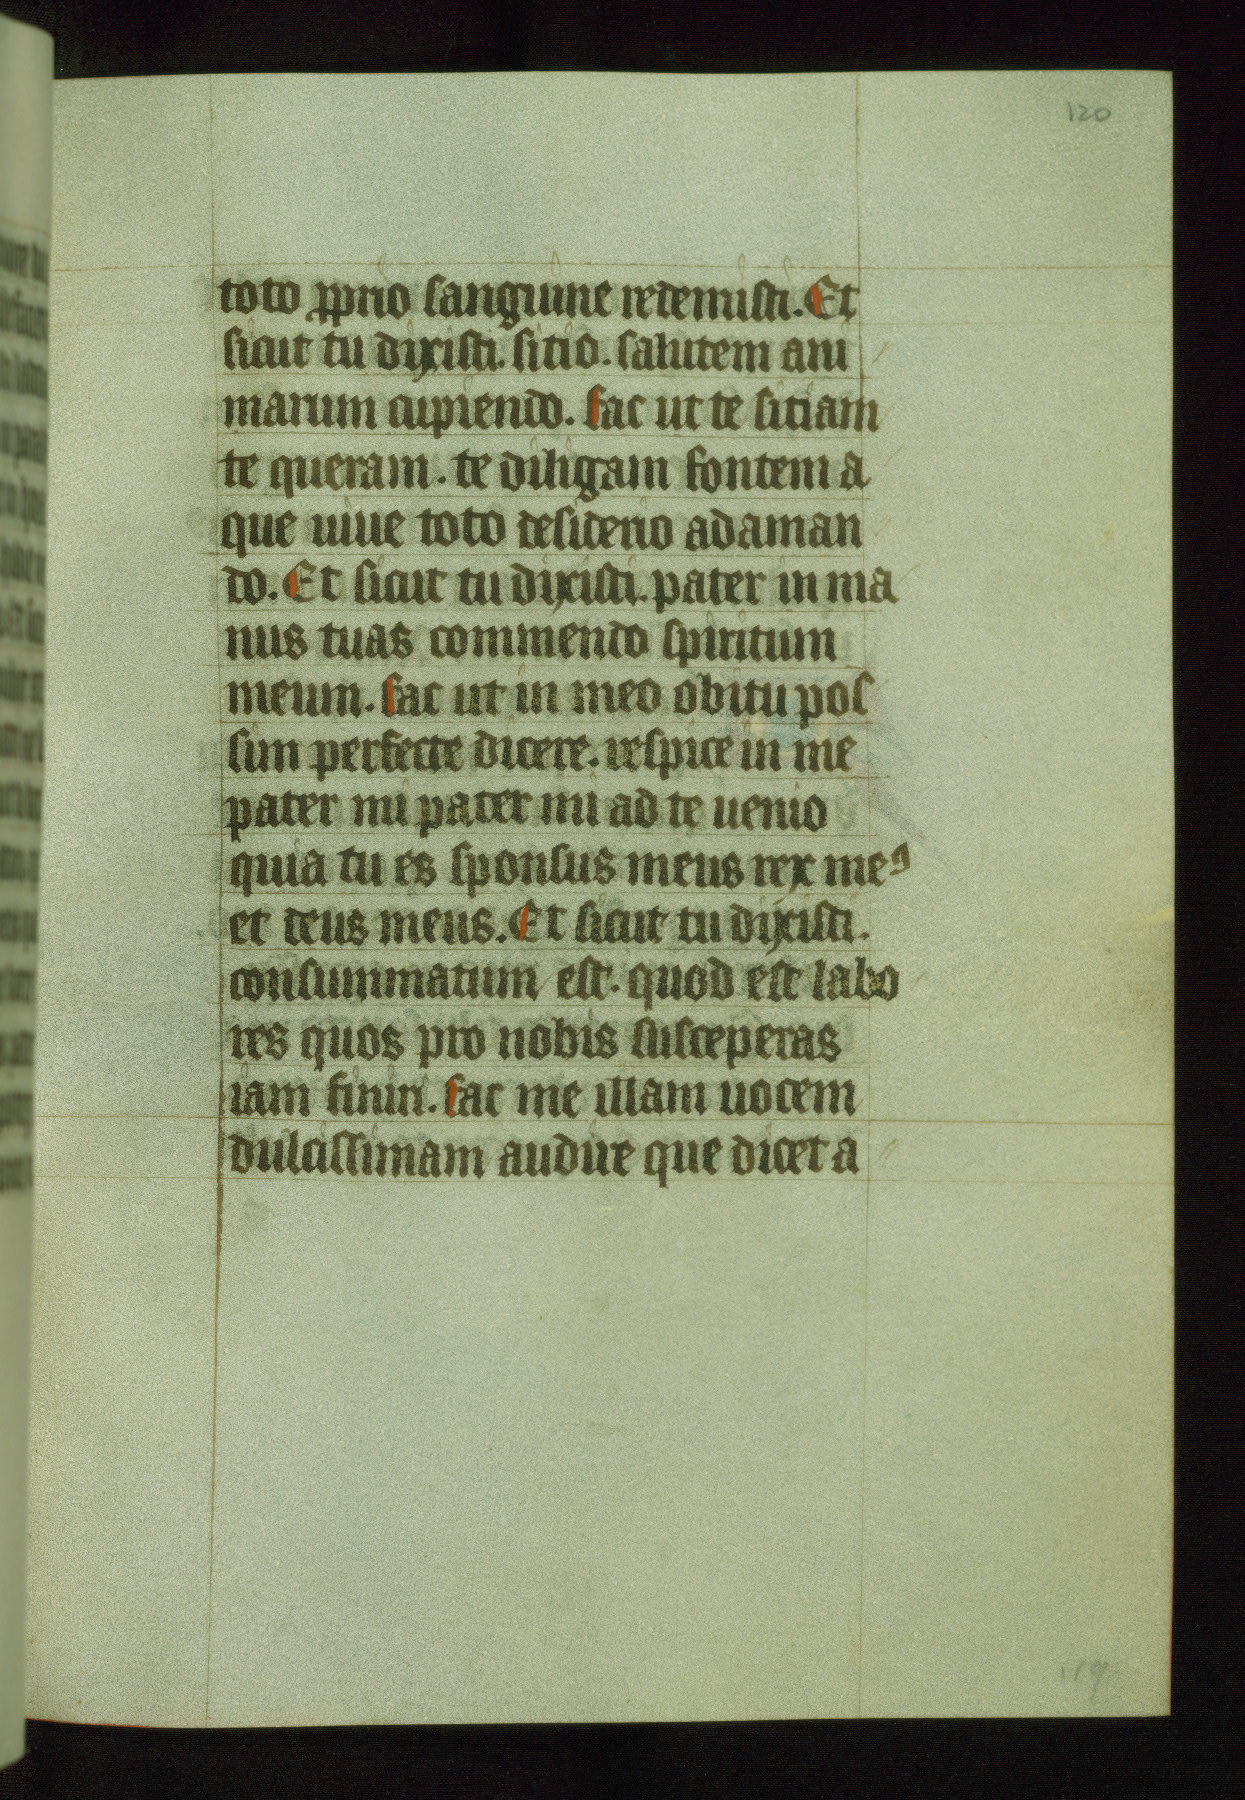 120
toto ꝓprio sanguine redemisti. Et
sicut tu dixisti. sitio. salutem ani
marum cupiendo. fac ut te sitiam
te queram. te diligam fontem a
que uiue toto desiderio adaman
do. Et sicut tu dixisti. pater in ma
nus tuas commendo spiritum
meum. fac ut in meo obitu pos
sim perfecte dicere. respice in me
pater mi pater mi ad te uenio
quia tu es sponsus meus rex meꝰ
et deus meus. Et sicut tu dixisti.
consummatum est. quod est labo
res quos pro nobis susceperas
iam finiri. fac me illam uocem
dulcissimam audire que dicet a
119